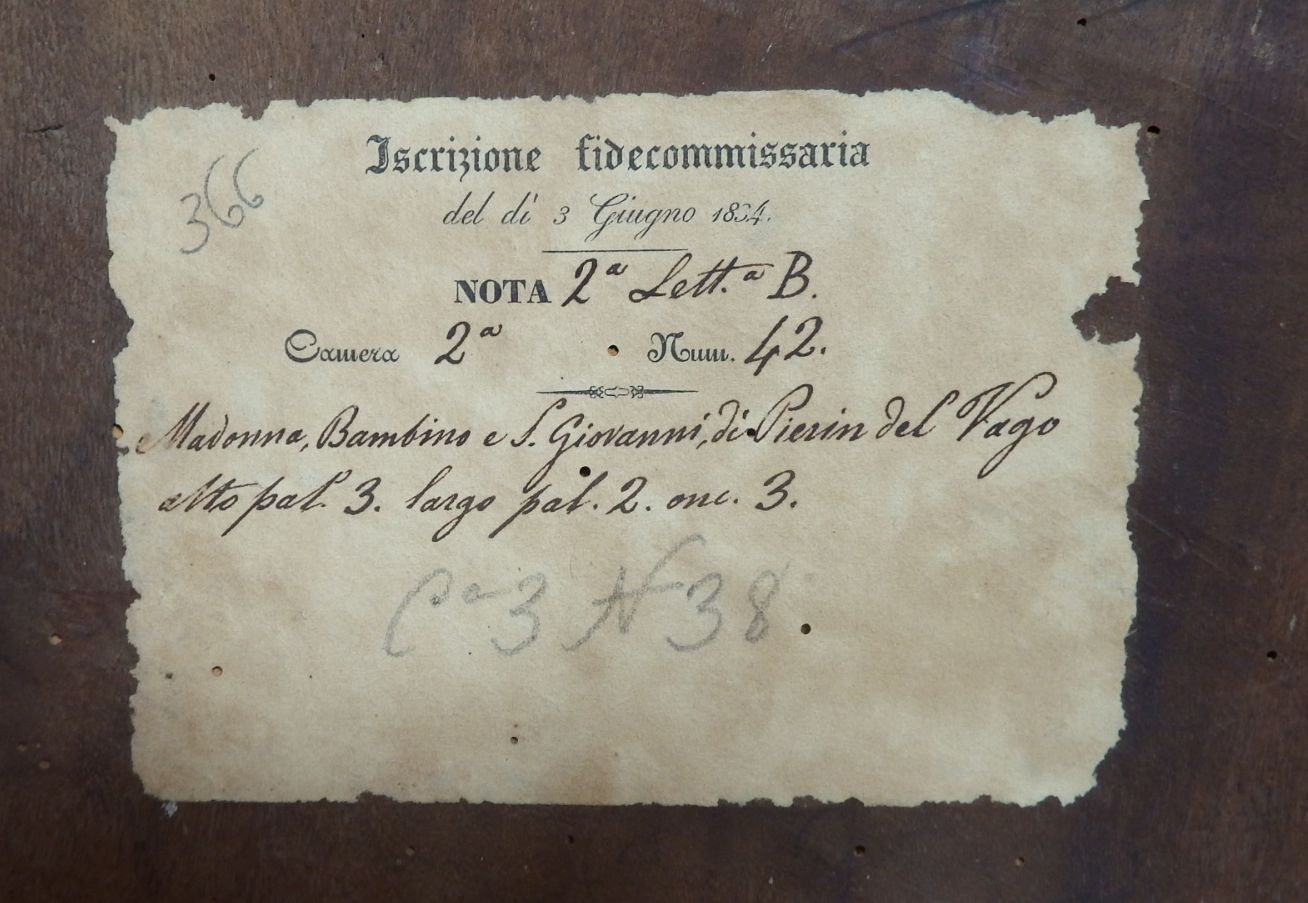 366
Iscrizione fidecommissaria
del dì 3 Giugno 1834.
NOTA 2ª Lett.ª B.
Camera 2ª Num. 42.
Madonna, Bambino e S. Giovanni, di Pierin del Vago
alto pal. 3. largo pal. 2. onc. 3.
Cª 3 N 38